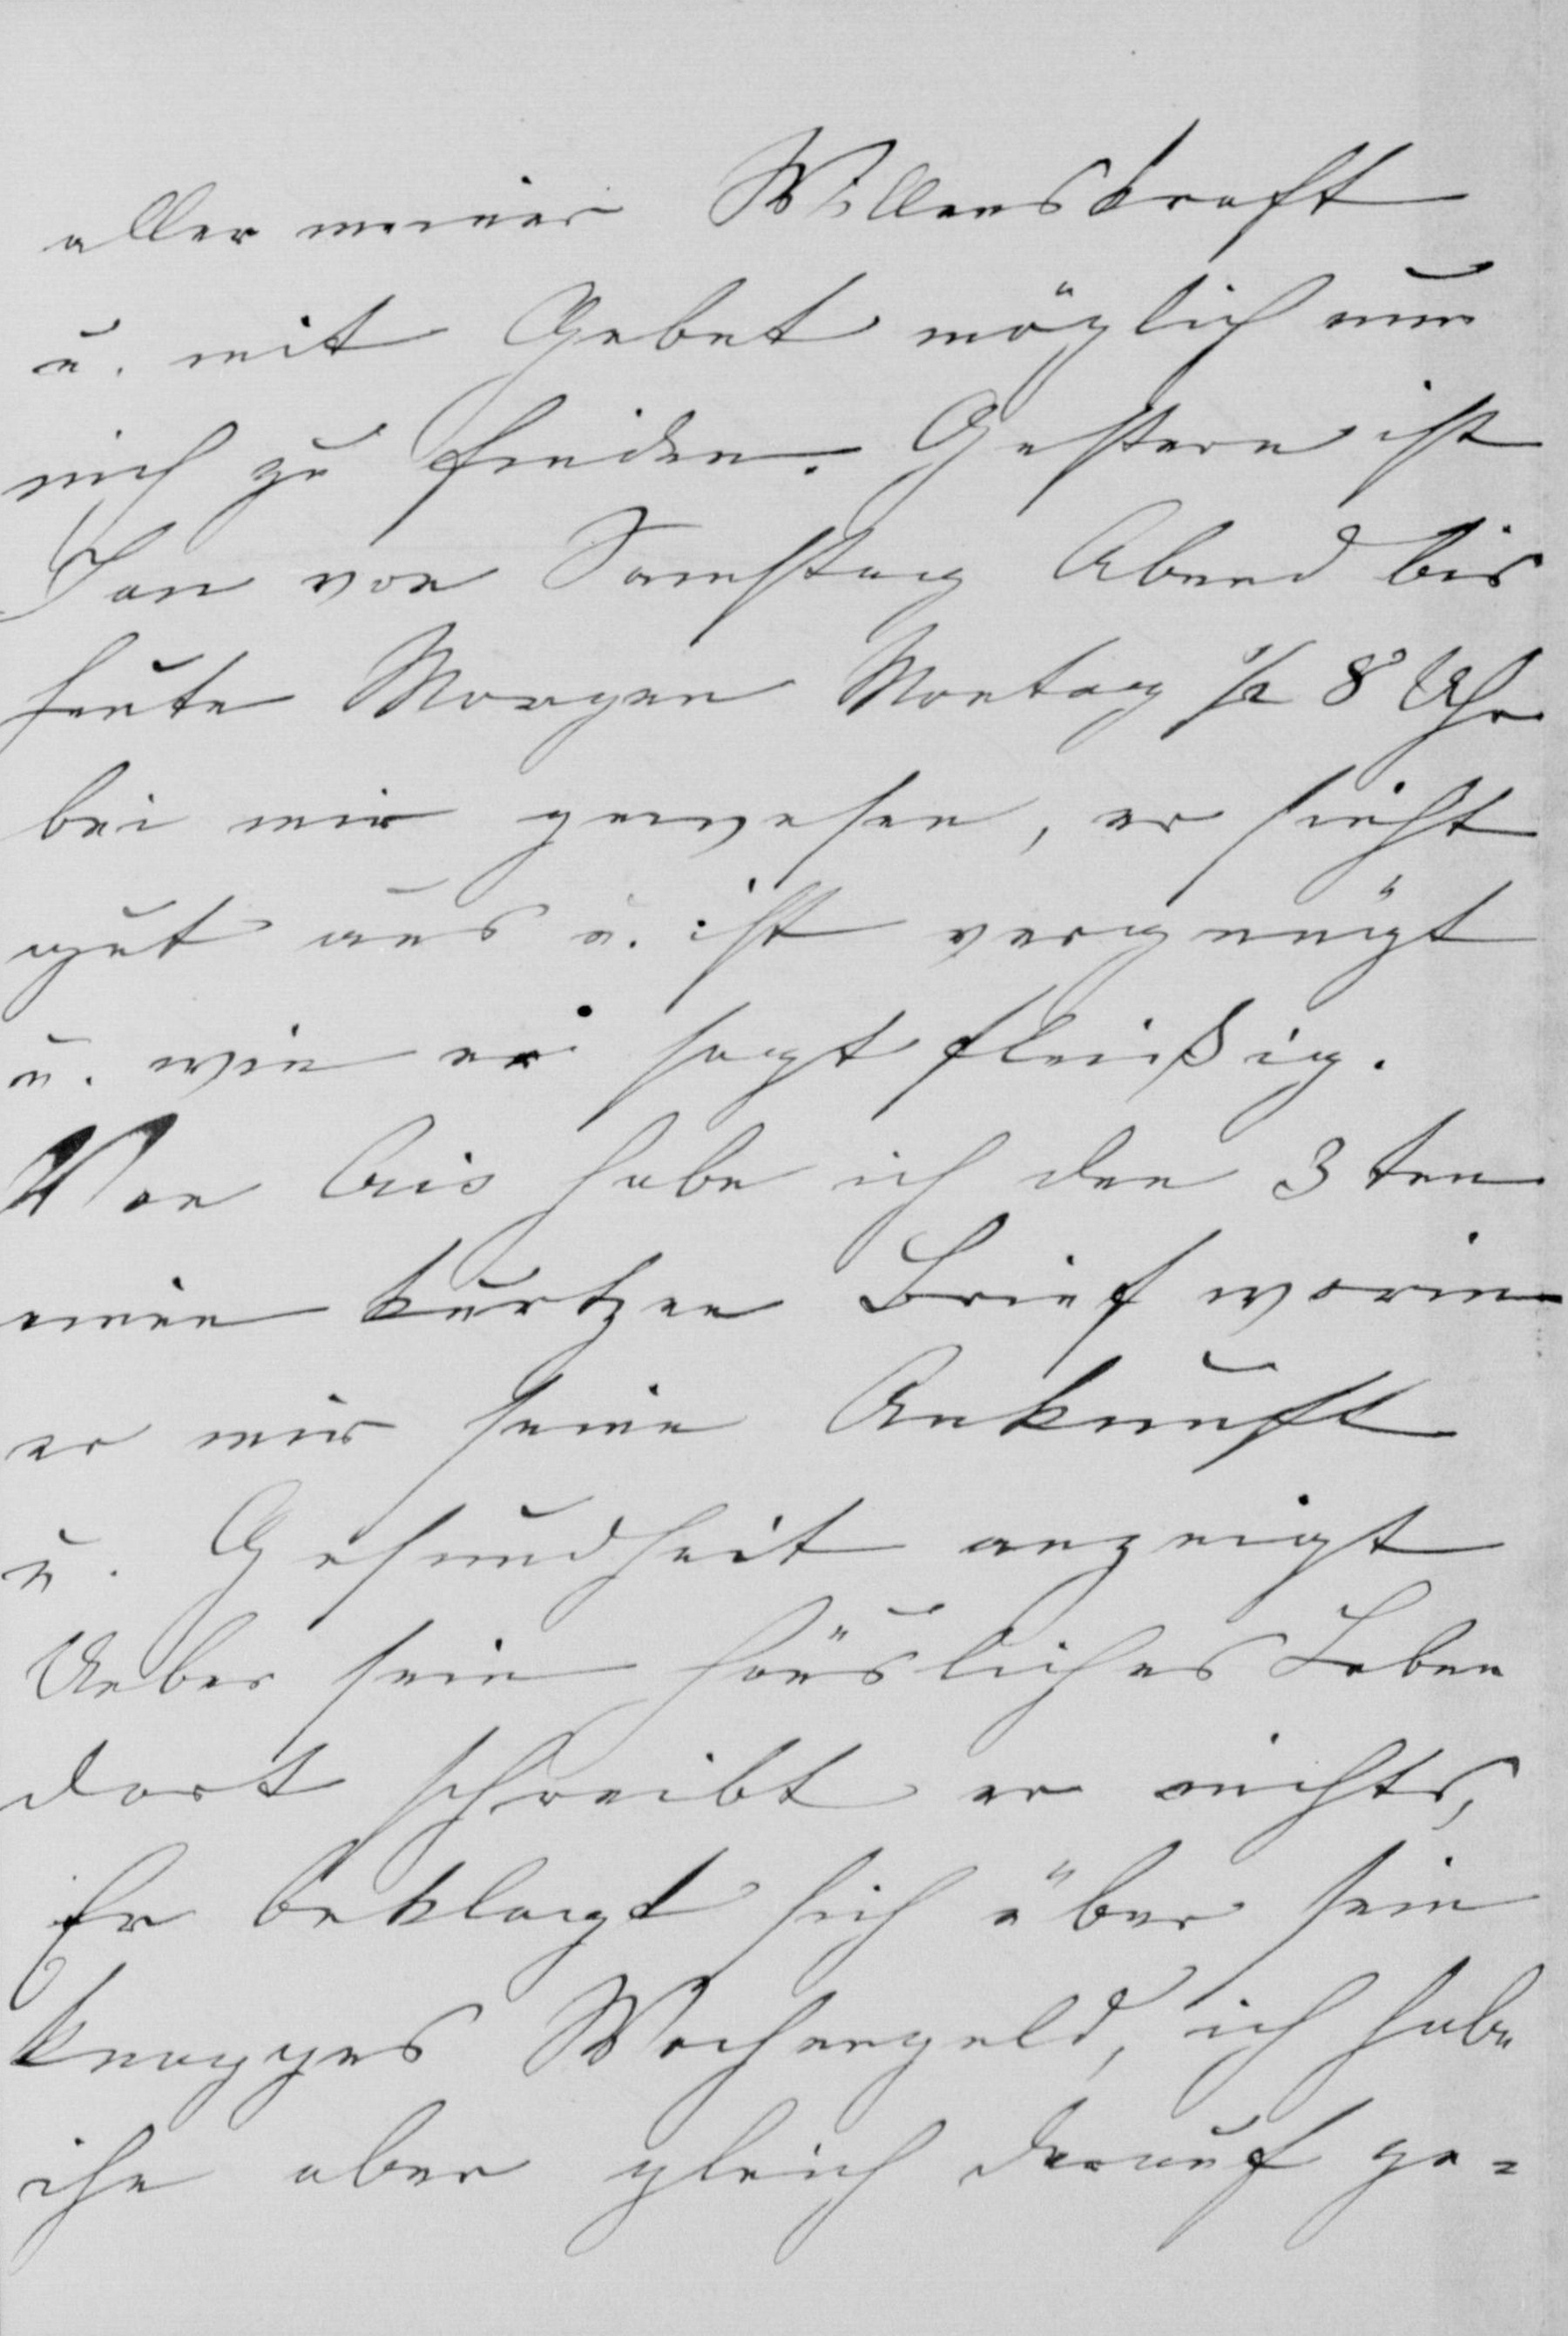 aller meiner Willenskraft
u. mit Gebet möglich nun
mich zu finden. Gestern ist
Jan von Samstag Abend bis
heute Morgen Montag 1/2 8 Uhr
bei mir gewesen, er sieht
gut aus u. ist vergnügt
u. wie er sagt fleißig.
Von habe ich den 3ten
einen kurtzen Brief worin
er mir seine Ankunft
u. Gesundheit anzeigt
Ueber sein häusliches Leben
dort schreibt er nichts,
Er beklagt sich über sein
knappes Wochengeld, ich habe
ihn aber gleich darauf ge=